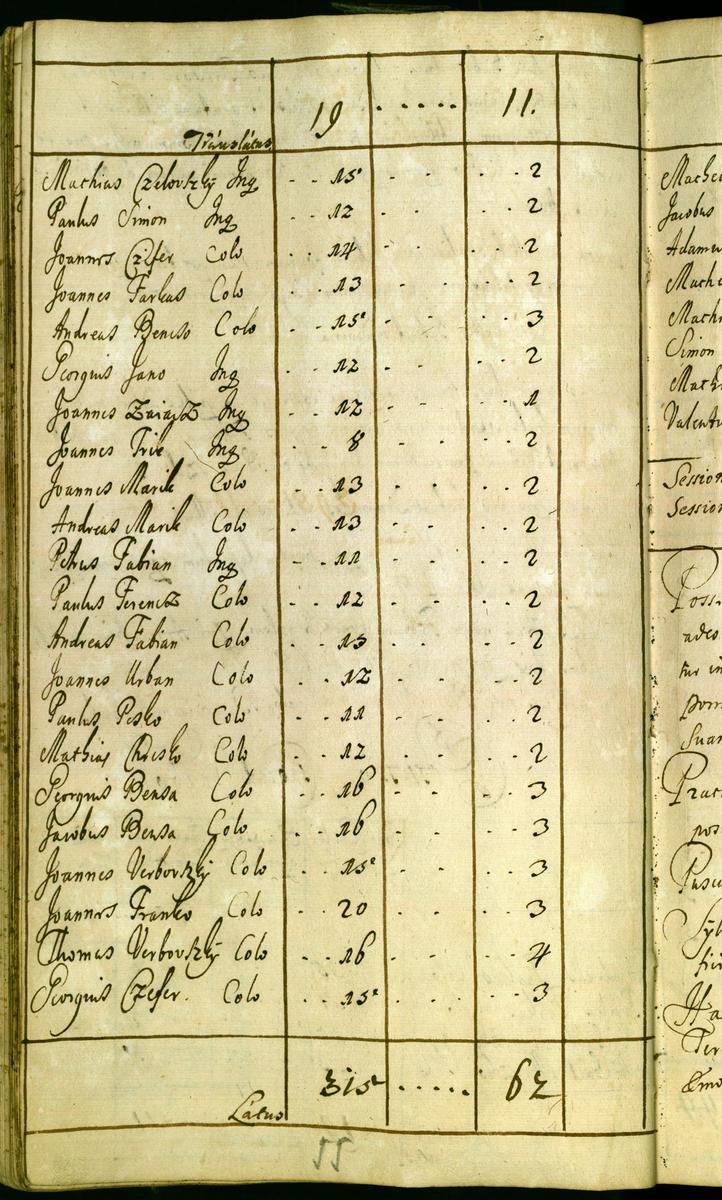 Translatus 19 . . . . . 11.
Mathias Czelovszky Inq . . 15 . . . 2
Paulus Simon Inq . . 12 . . . . 2
Joannes Czifer Colo . . 14 . . . . 2
Joannes Farkas Colo . . 13 . . . . 2
Andreas Bencso Colo . . 15 . . . . 3
Georgius Jano Inq . . 12 . . . . 2
Joannes Zaiacz Inq . . 12 . . . . 1
Joannes Trik Inq . . 8 . . . . 2
Joannes Marik Colo . . 13 . . . . 2
Andreas Marik Colo . . 13 . . . . 2
Petrus Fabian Inq . . 11 . . . . 2
Paulus Ferencz Colo . . 12 . . . . 2
Andreas Fabian Colo . . 13 . . . . 2
Joannes Urban Colo . . 12 . . . . 2
Paulus Pesko Colo . . 11 . . . . 2
Mathias Chresko Colo . . 12 . . . . 2
Georgius Bensa Colo . . 16 . . . . 3
Jacobus Bensa Colo . . 16 . . . . 3
Joannes Verbovszky Colo . . 15 . . . . 3
Joannes Franko Colo . . 20 . . . . 3
Thomas Verbovszky Colo . . 16 . . . . 4
Georgius Czefer. Colo . . 15 . . . . 3
Latus 315 . . . . . 62
Jacobus
Simon